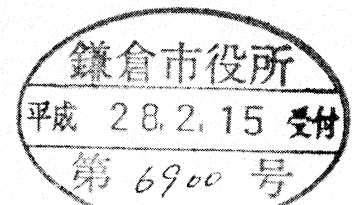 鎌倉市役所
平成 28.2.15 受付
第 6900 号